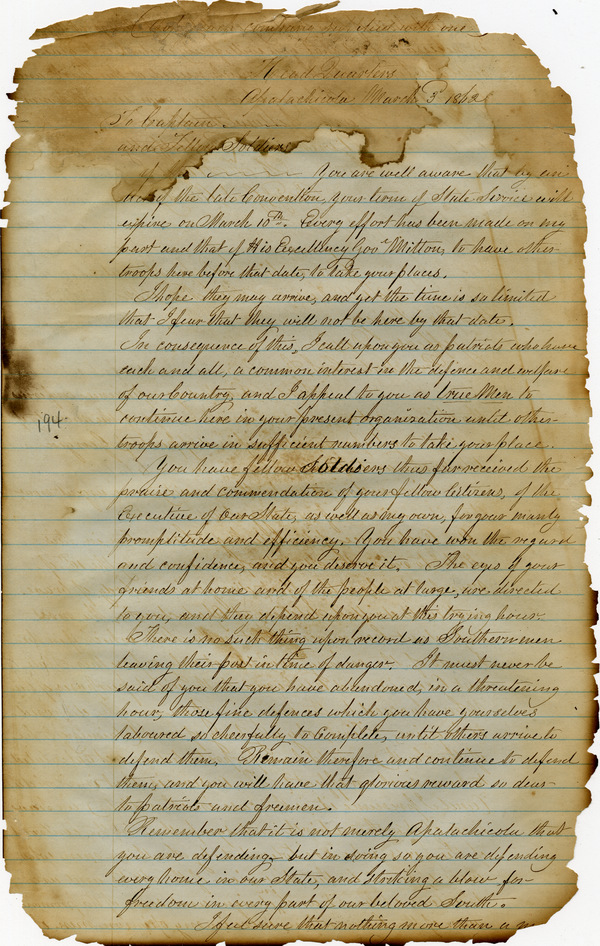 with one
Head Quarters
Apalachicola March 3d 1862
To Captain
and Fellow Soldiers
You are well aware that by an
of the late Convention, your term of State Service will
expire on March 10th. Every effort has been made on my
part and that of His Excellency Govr Milton, to have other
troops here before that date, to take your places.
I hope they may arrive, and yet the time is so limited
that I fear that they will not be here by that date.
In consequence of this, I call upon you as patriots who have
each and all, a common interest in the defence and welfare
of our Country, and I appeal to you as true Men to
continue here in your present organization until other
194
troops arrive in sufficient numbers to take your place.
You have fellow Soldiers thus far received the
praise and commendation of your fellow Citizens, of the
Executive of Our State, as well as my own, for your manly
promptitude and efficiency. You have won the regard
and confidence, and you deserve it. The eyes of your
friends at home and of the people at large, are directed
to you, and they depend upon you at this trying hour.
There is no such thing upon record as Southern men
leaving their post in time of danger. It must never be
said of you that you have abandoned, in a threatening
hour, those fine defences which you have yourselves
laboured so cheerfully to complete, until others arrive to
defend them. Remain therefore and continue to defend
them, and you will have that glorious reward so dear
to patriots and freemen.
Remember that it is not merely Apalachicola that
you are defending, but in doing so you are defending
every home in our State, and striking a blow for
freedom in every part of our beloved South.
I feel sure that nothing more than a